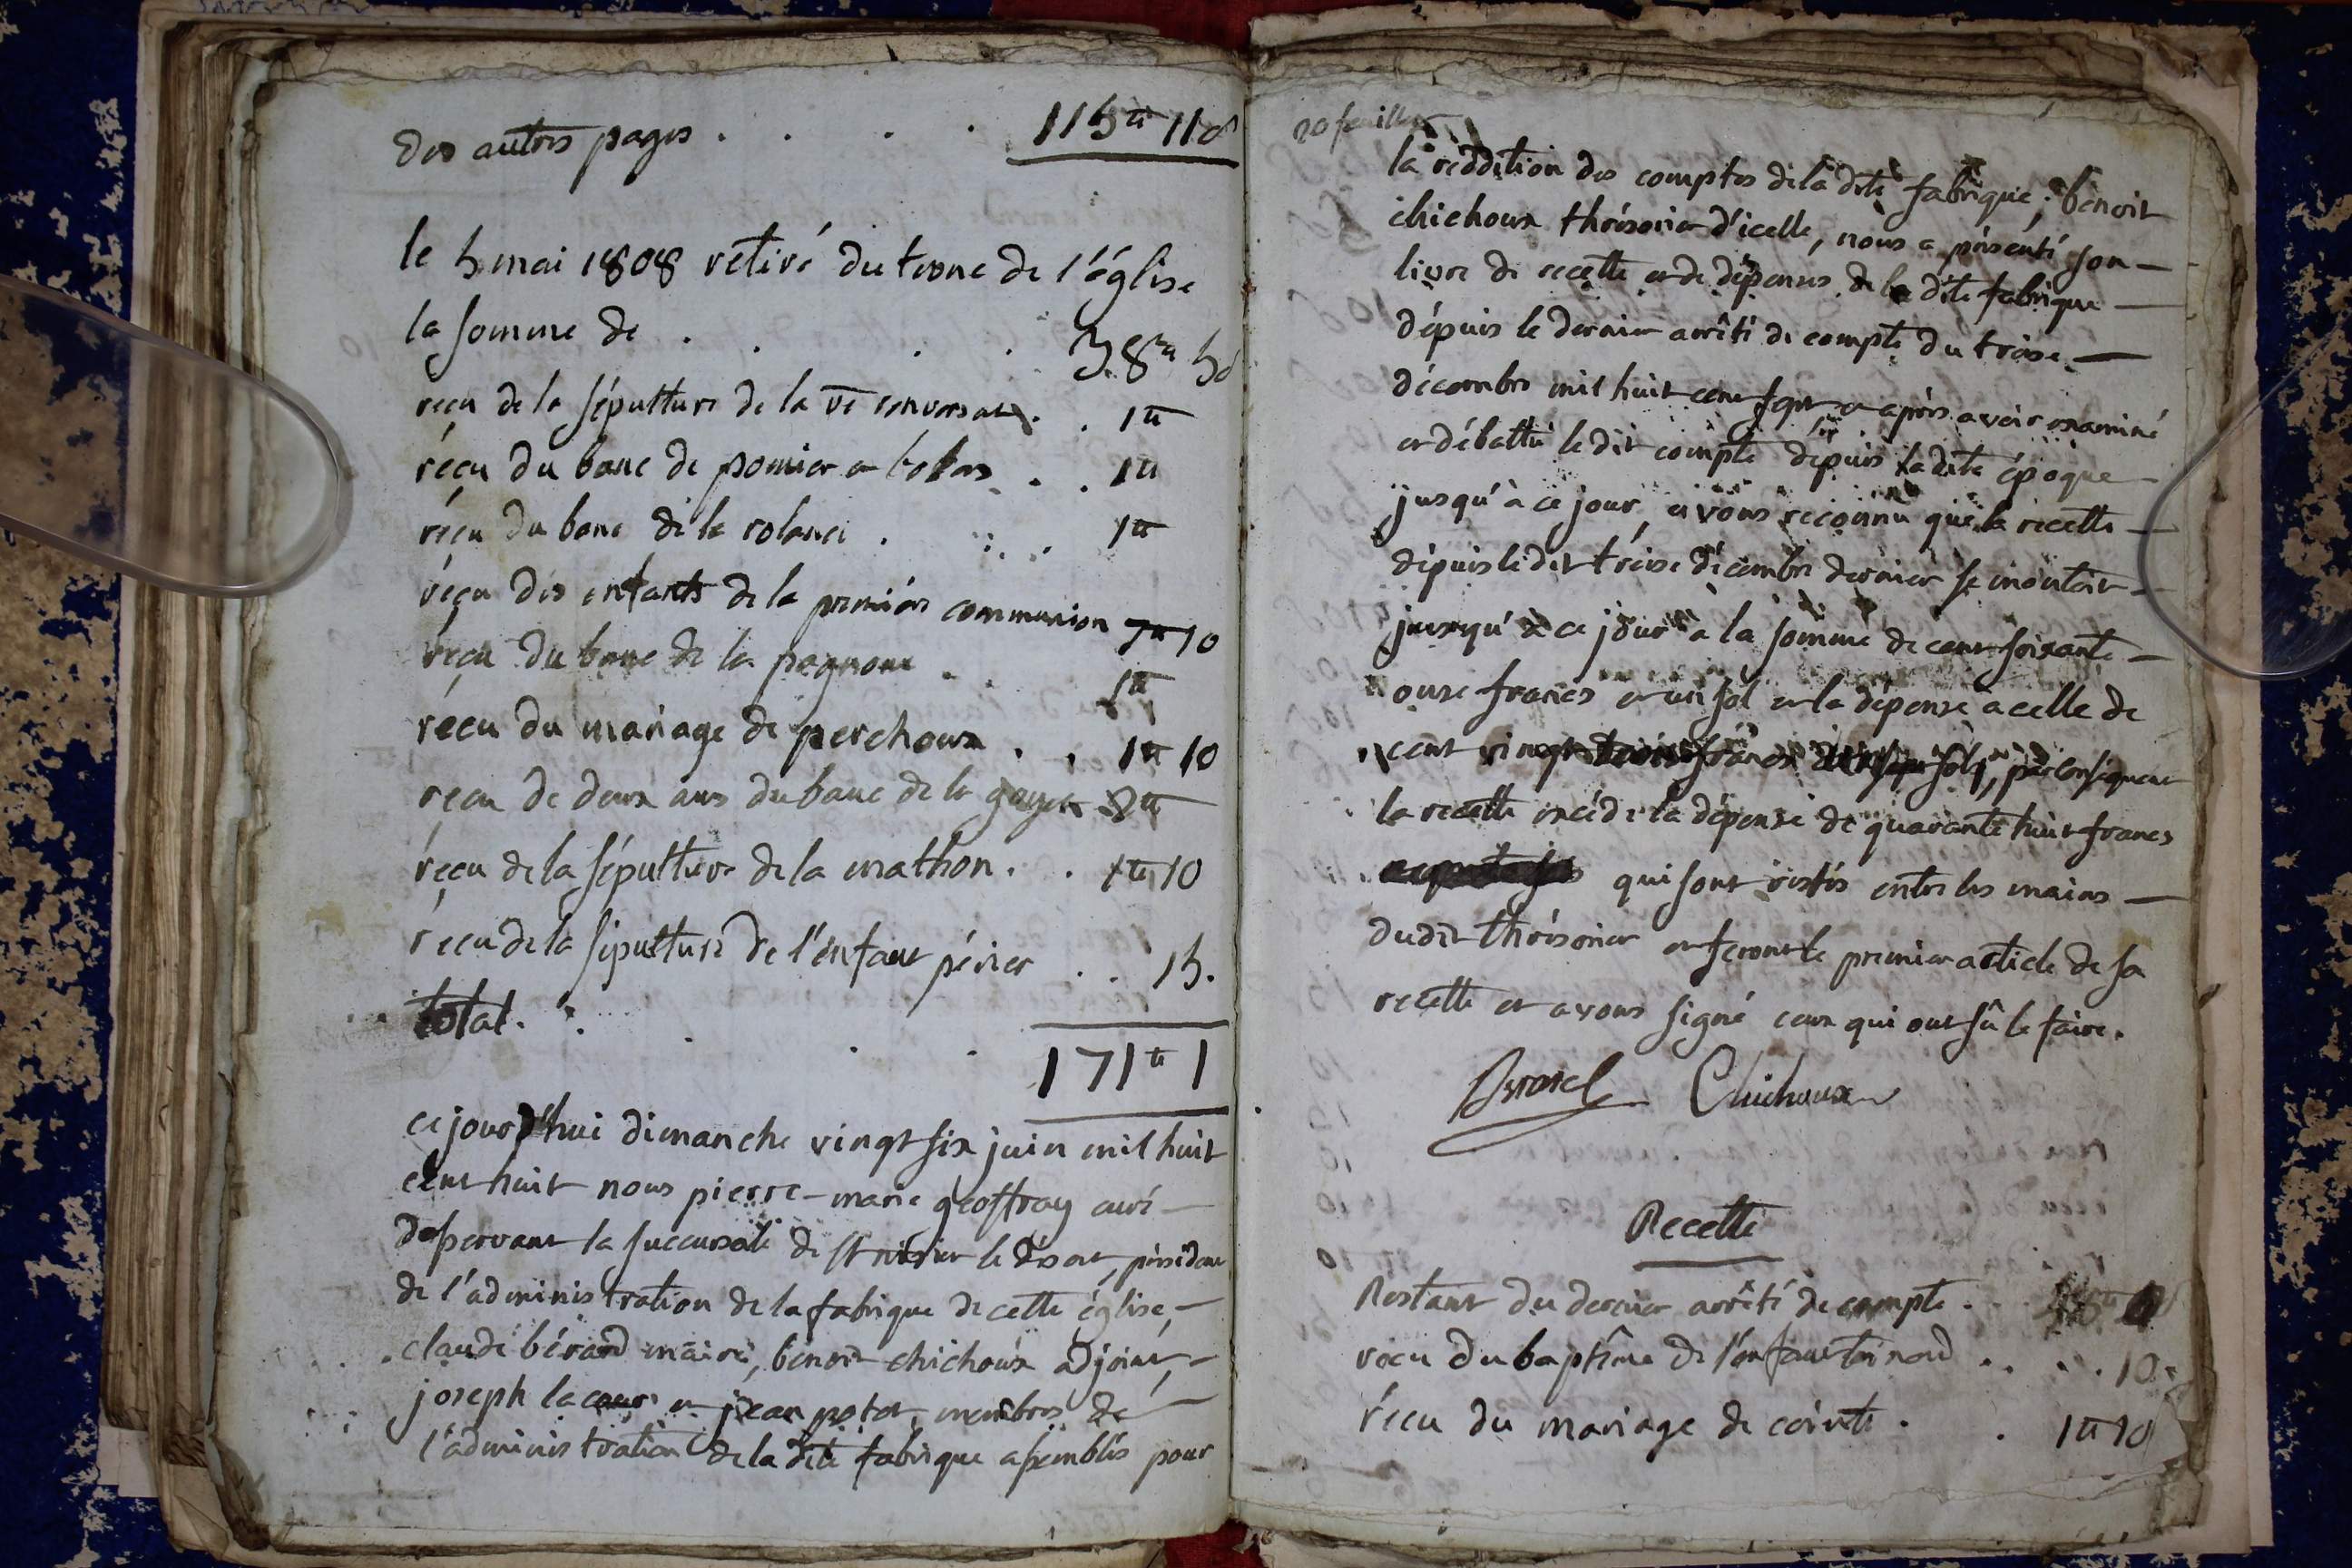 des autres pages . . . . 115ᵗᵗ 11ˢ
le 5 mai 1808 retiré du tronc de l'église
la somme de . . . . 38ᵗᵗ 5ˢ
reçu de la sépulture de la vᵉ . . 1ᵗᵗ
réçu du banc de pomier et . . 1ᵗᵗ
réçu du banc de la . . . 1ᵗᵗ
réçu des enfants de la premiére communion 7ᵗᵗ 10
réçu du banc de la pagnone . . 1ᵗᵗ
réçu du mariage de perchoux . . 1ᵗᵗ 10
réçu de deux ans du banc de la 2ᵗᵗ
réçu de la sépulture de la mathon . . 1ᵗᵗ 10
réçu de la sépulture de l'enfant périer . . 15.
total. . . . .
171ᵗᵗ 1
cejourd'hui dimanche vingt six juin mil huit
cent huit nous pierre-marie géoffray curé –
desservant la succursale de st nisier le désert, président
de l'administration de la fabrique de cette église, –
claude bérard maire, benoit chichoux adjoint, –
joseph lacour et jean potet, membres de –
l'administration de la dite fabrique assemblés pour
20 feuillet
la réddition des comptes de la dite fabrique; benoit
chichoux thrésorier d'icelle, nous a présenté son –
livre de recette et de dépenses de la dite fabrique –
dépuis le dernier arrêté de compte du treise –
décembre mil huit cent sept et après avoir examiné
et débattu le dit compte dépuis la dite époque
jusqu'à ce jour, avons reconnu que la recette –
dépuis le dit tréise décembre dernier se montoit –
jusqu'à ce jour à la somme de cent soixante –
onse francs et un sol et la dépense a celle de
cent vingt trois francs sols, par conséquent
la recette excéde la dépense de quarante huit francs
qui sont restés entre les mains –
dudit thrésorier et feront le premier article de sa
recette et avons signé ceux qui ont sû le faire.
Chichoux
Recette
Restant du dernier arrêté de compte . . 48ᵗᵗ
réçu du baptême de l'enfant . . . . 10
réçu du mariage de . . 1ᵗᵗ 10